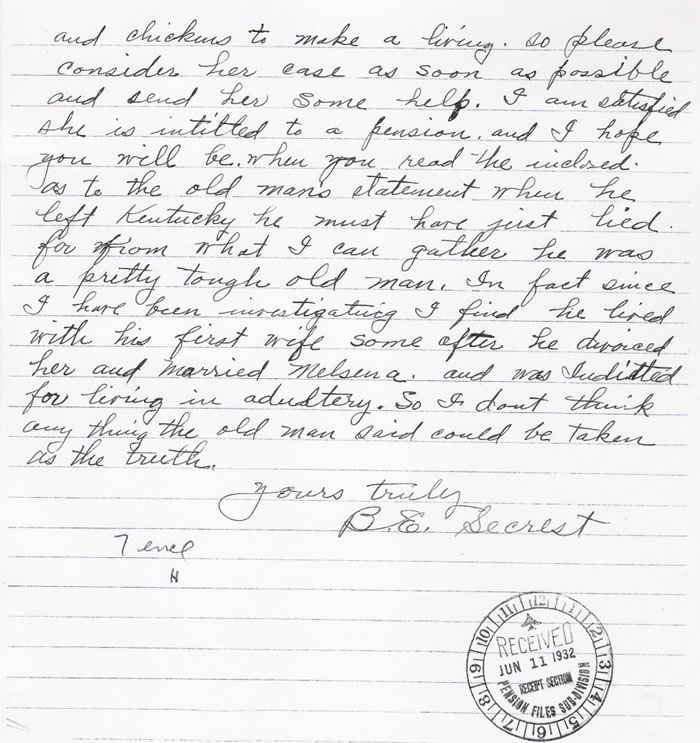 and chickens to make a living. so please
consider her case as soon as possible
and send her some help. I am satisfied
she is intitled to a pension. and I hope
you will be. when you read the inclosed.
as to the old mans statement when he
left Kentucky he must have just lied.
for from what I can gather he was
a pretty tough old man. In fact since
I have been investigating I find he lived
with his first wife some after he divoiced
her and married Melsena. and was Indicted
for living in adultery. So I dont think
any thing the old man said could be taken
as the truth.
yours truly
B.E. Secrest
7 encl
N
12 1 2 3 4 5 6 7 8 9 10 11
RECEIVED
JUN 11 1932
RECEIPT SECTION
PENSION FILES SUB-DIVISION